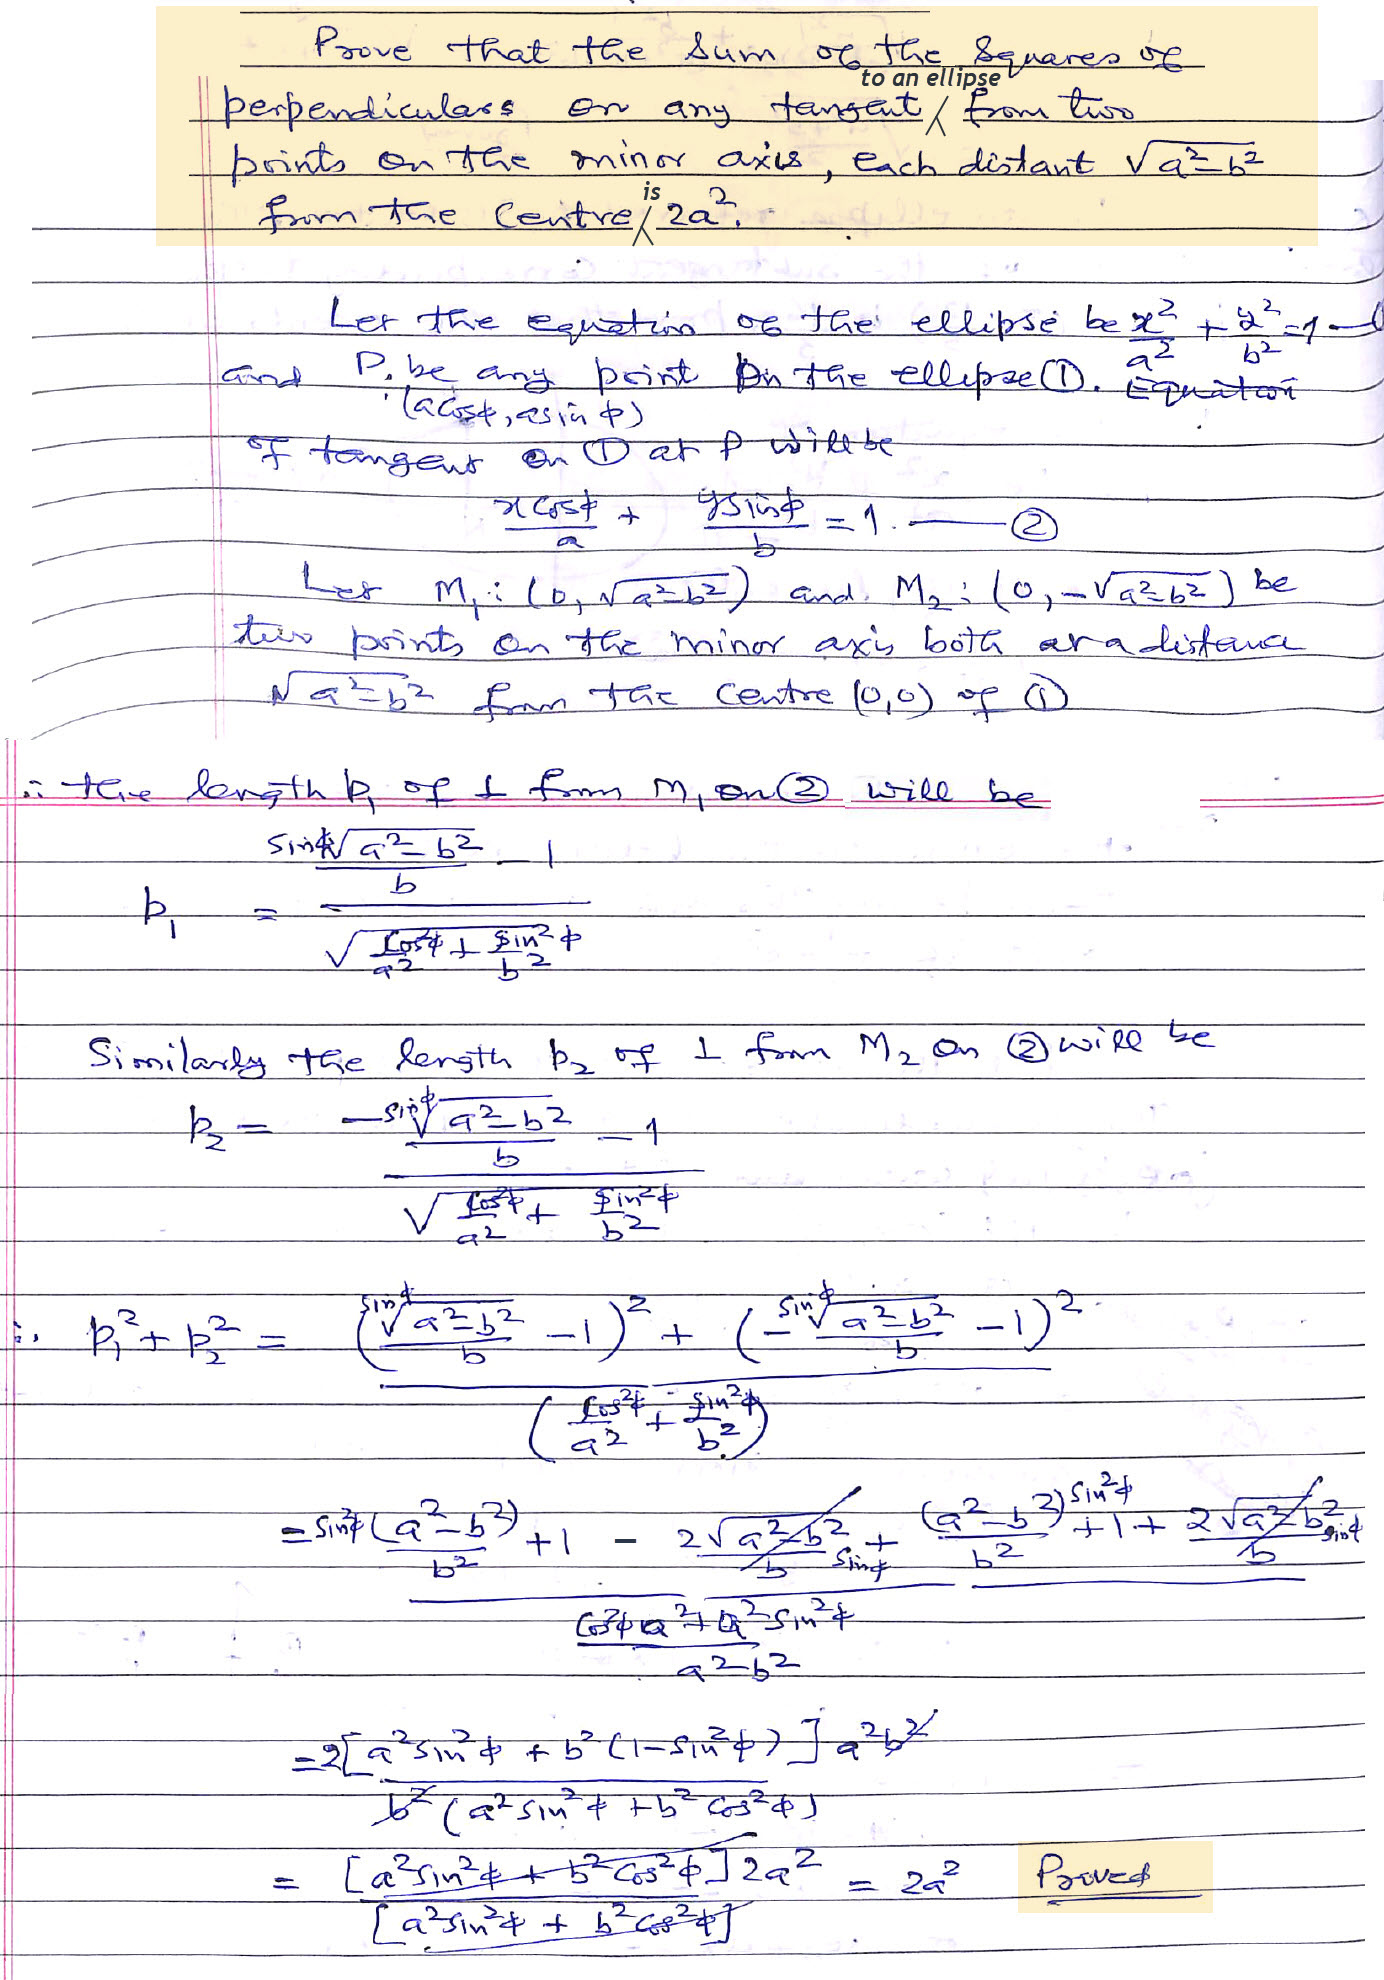 Prove that the sum of the squares of
to an ellipse
perpendiculars on any tangent from two
points on the minor axis, each distant √a²-b²
is
from the centre 2a².
Let the equation of the ellipse be x²/a² + y²/b² = 1 —
and P. be any point on the ellipse ①. Equation
(a cosφ, a sin φ)
of tangent on ① at P will be
x cosφ/a + y sinφ/b = 1. — ②
Let M₁: (0, √a²-b²) and M₂: (0, -√a²-b²) be
two points on the minor axis both at a distance
√a²-b² from the centre (0,0) of ①
∴ the length p₁ of ⊥ from M₁ on ② will be
p₁ = (sinφ√a²-b²/b - 1) / √(cos²φ/a² + sin²φ/b²)
Similarly the length p₂ of ⊥ from M₂ on ② will be
p₂ = (-sinφ√a²-b²/b - 1) / √(cos²φ/a² + sin²φ/b²)
∴ p₁² + p₂² = ((sinφ√a²-b²/b - 1)² + (-sinφ√a²-b²/b - 1)²) / (cos²φ/a² + sin²φ/b²)
= (sin²φ(a²-b²)/b² + 1 - 2√a²-b²/b sinφ + (a²-b²)sin²φ/b² + 1 + 2√a²-b²/b sinφ) / (cos²φ a² + a² sin²φ / a²-b²)
= 2[a² sin²φ + b²(1-sin²φ)] a²b² / b²(a² sin²φ + b² cos²φ)
= [a² sin²φ + b² cos²φ] 2a² / [a² sin²φ + b² cos²φ] = 2a² Proved